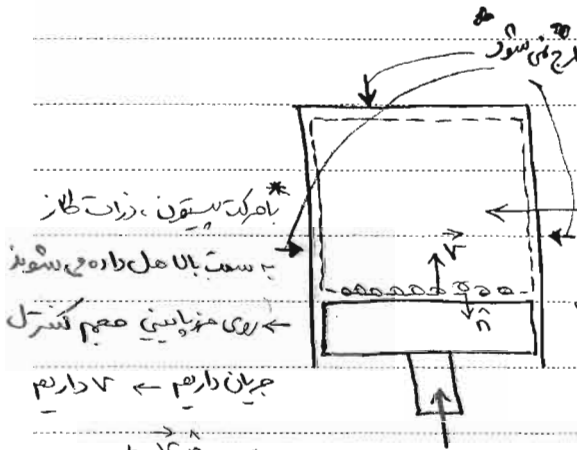 خارج نمی شود
* با حرکت پیستون، ذرات گاز
به سمت بالا هل داده می شوند
← روی مرز پایینی حجم کنترل
جریان داریم ← V داریم
V
n̂